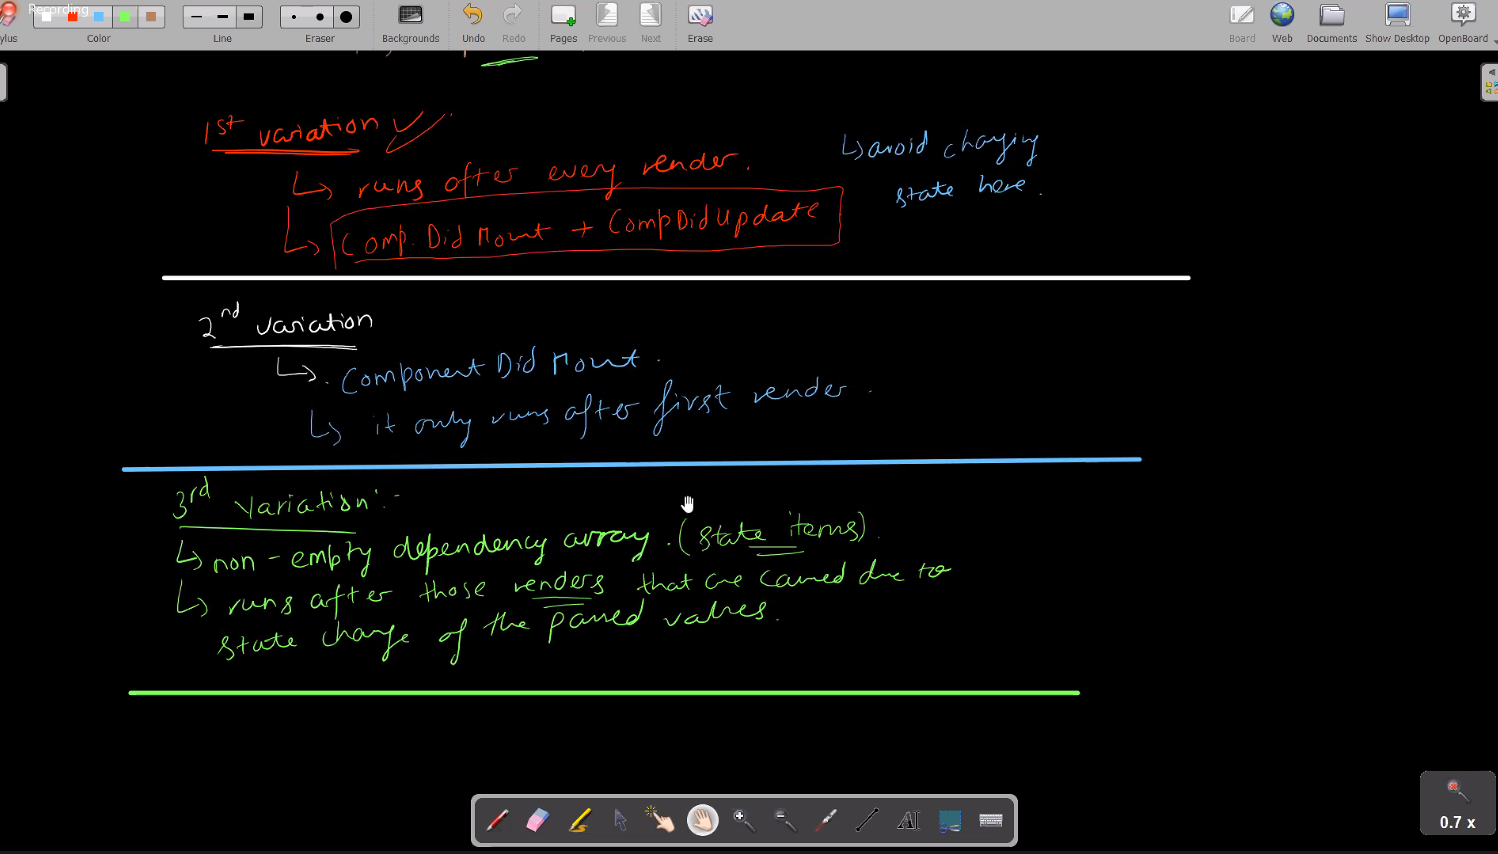 Recording
ylus
Color
Line
Eraser
Backgrounds
Undo
Redo
Pages
Previous
Next
Erase
Board
Web
Documents
Show Desktop
OpenBoard
1st variation
↳ runs after every render.
↳ Comp. Did Mount + CompDidUpdate
↳ avoid changing
state here.
2nd variation
↳ Component Did Mount.
↳ it only runs after first render.
3rd Variation:-
↳ non-empty dependency array. (state items).
↳ runs after those renders that are caused due to
state change of the passed values.
0.7 x